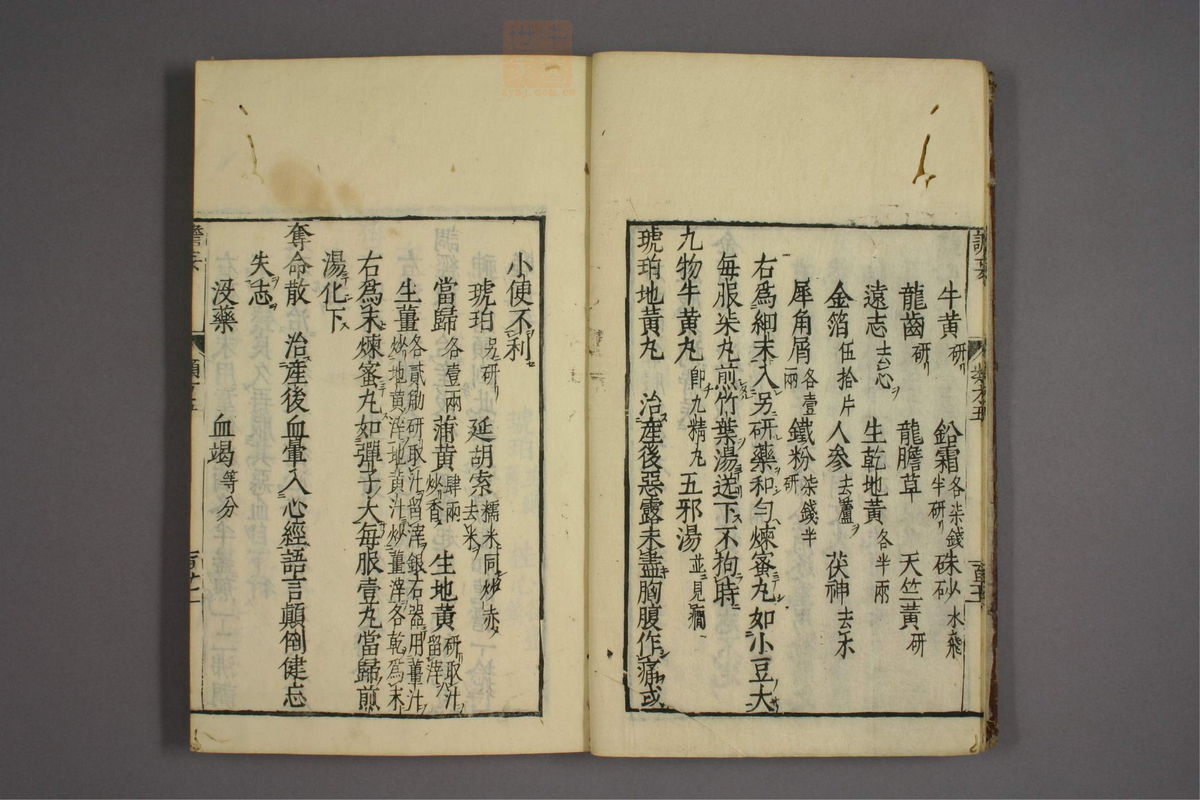 牛黃研 鉛霜各柒錢半研 硃砂水飛
龍齒研 龍膽草 天竺黃研
遠志去心 生乾地黃各半兩
金箔伍拾片 人參去蘆 茯神去木
犀角屑各壹兩 鐵粉柒錢半研
右爲細末入另研藥和勻煉蜜丸如小豆大
每服柒丸煎竹葉湯送下不拘時
九物牛黃丸 即九精丸 五邪湯並見癇
琥珀地黃丸 治產後惡露未盡胸腹作痛或
小便不利
琥珀另研 延胡索糯米同炒赤去米
當歸各壹兩 蒲黃肆兩炒香 生地黃研取汁留滓
生薑各貳觔研取汁留滓銀石器用薑汁炒地黃滓地黃汁炒薑滓各乾爲末
右爲末煉蜜丸如彈子大每服壹丸當歸煎
湯化下
奪命散 治產後血暈入心經語言顛倒健忘
失志
沒藥 血竭等分